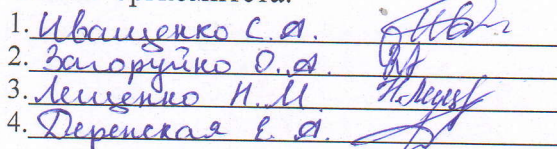 1. Иващенко С. А.
2. Загоруйко О. А.
3. Лещенко Н. М.
4. Деренская Е. А.